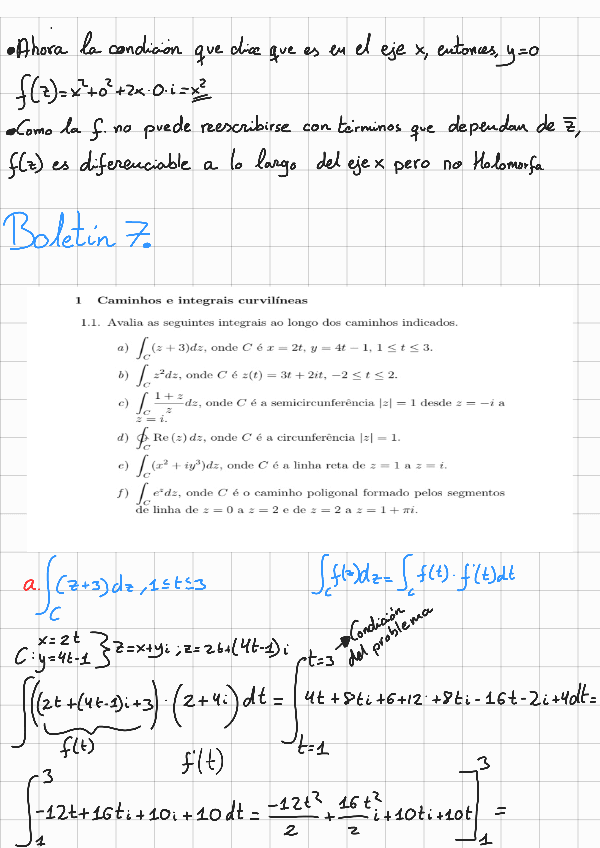 •Ahora la condición que dice que es en el eje x, entonces, y=0
f(z)=x²+0²+2x·0·i=x²
•Como la f. no puede reescribirse con términos que dependan de z̅,
f(z) es diferenciable a lo largo del eje x pero no Holomorfa
Boletín 7.
1 Caminhos e integrais curvilíneas
1.1. Avalia as seguintes integrais ao longo dos caminhos indicados.
a) ∫_C (z + 3)dz, onde C é x = 2t, y = 4t − 1, 1 ≤ t ≤ 3.
b) ∫_C z²dz, onde C é z(t) = 3t + 2it, −2 ≤ t ≤ 2.
c) ∫_C (1 + z)/z dz, onde C é a semicircunferência |z| = 1 desde z = −i a
z = i.
d) ∮_C Re (z) dz, onde C é a circunferência |z| = 1.
e) ∫_C (x² + iy³)dz, onde C é a linha reta de z = 1 a z = i.
f) ∫_C e^z dz, onde C é o caminho poligonal formado pelos segmentos
de linha de z = 0 a z = 2 e de z = 2 a z = 1 + πi.
a. ∫_C (z+3)dz, 1≤t≤3
∫_C f(z)dz=∫_C f(t)·f'(t)dt
C: x=2t
y=4t-1 } z=x+yi ; z=2t+(4t-1)i
Condición
del problema
∫((2t+(4t-1)i+3)·(2+4i)dt = ∫_{t=1}^{t=3} 4t+8ti+6+12·+8ti-16t-2i+4dt=
f(t)
f'(t)
∫_1^3 -12t+16ti+10i+10dt = -12t²/2 + 16t²/2 i+10ti+10t]_1^3 =